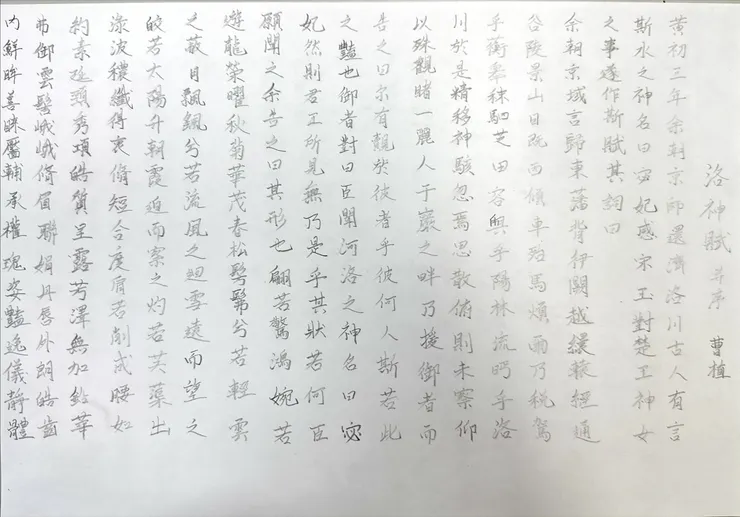 洛神賦 并序 曹植
黃初三年余朝京師還濟洛川古人有言
斯水之神名曰宓妃感宋玉對楚王神女
之事遂作斯賦其詞曰
余朝京域言歸東藩背伊闕越轘轅經通
谷陵景山日既西傾車殆馬煩爾乃稅駕
乎蘅皋秣駟芝田容與乎陽林流眄乎洛
川於是精移神駭忽焉思散俯則未察仰
以殊觀睹一麗人于巖之畔乃援御者而
告之曰尔有覿於彼者乎彼何人斯若此
之豔也御者對曰臣聞河洛之神名曰宓
妃然則君王所見無乃是乎其狀若何臣
願聞之余告之曰其形也翩若驚鴻婉若
遊龍榮曜秋菊華茂春松髣髴兮若輕雲
之蔽月飄颻兮若流風之迴雪遠而望之
皎若太陽升朝霞迫而察之灼若芙蕖出
淥波穠纖得衷脩短合度肩若削成腰如
約素延頸秀項皓質呈露芳澤無加鉛華
弗御雲髻峨峨脩眉聯娟丹唇外朗皓齒
內鮮眸善睞靨輔承權瑰姿豔逸儀靜體